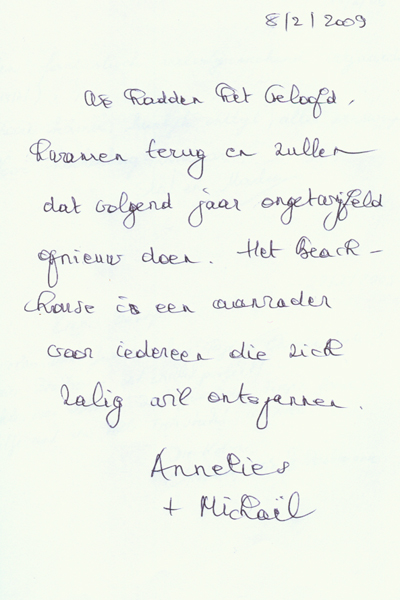 8/2/2009
We hadden het beloofd,
kwamen terug en zullen
dat volgend jaar ongetwijfeld
opnieuw doen. Het Beach-
house is een aanrader
voor iedereen die zich
zalig wil ontspannen.
Annelies
+ Michaël